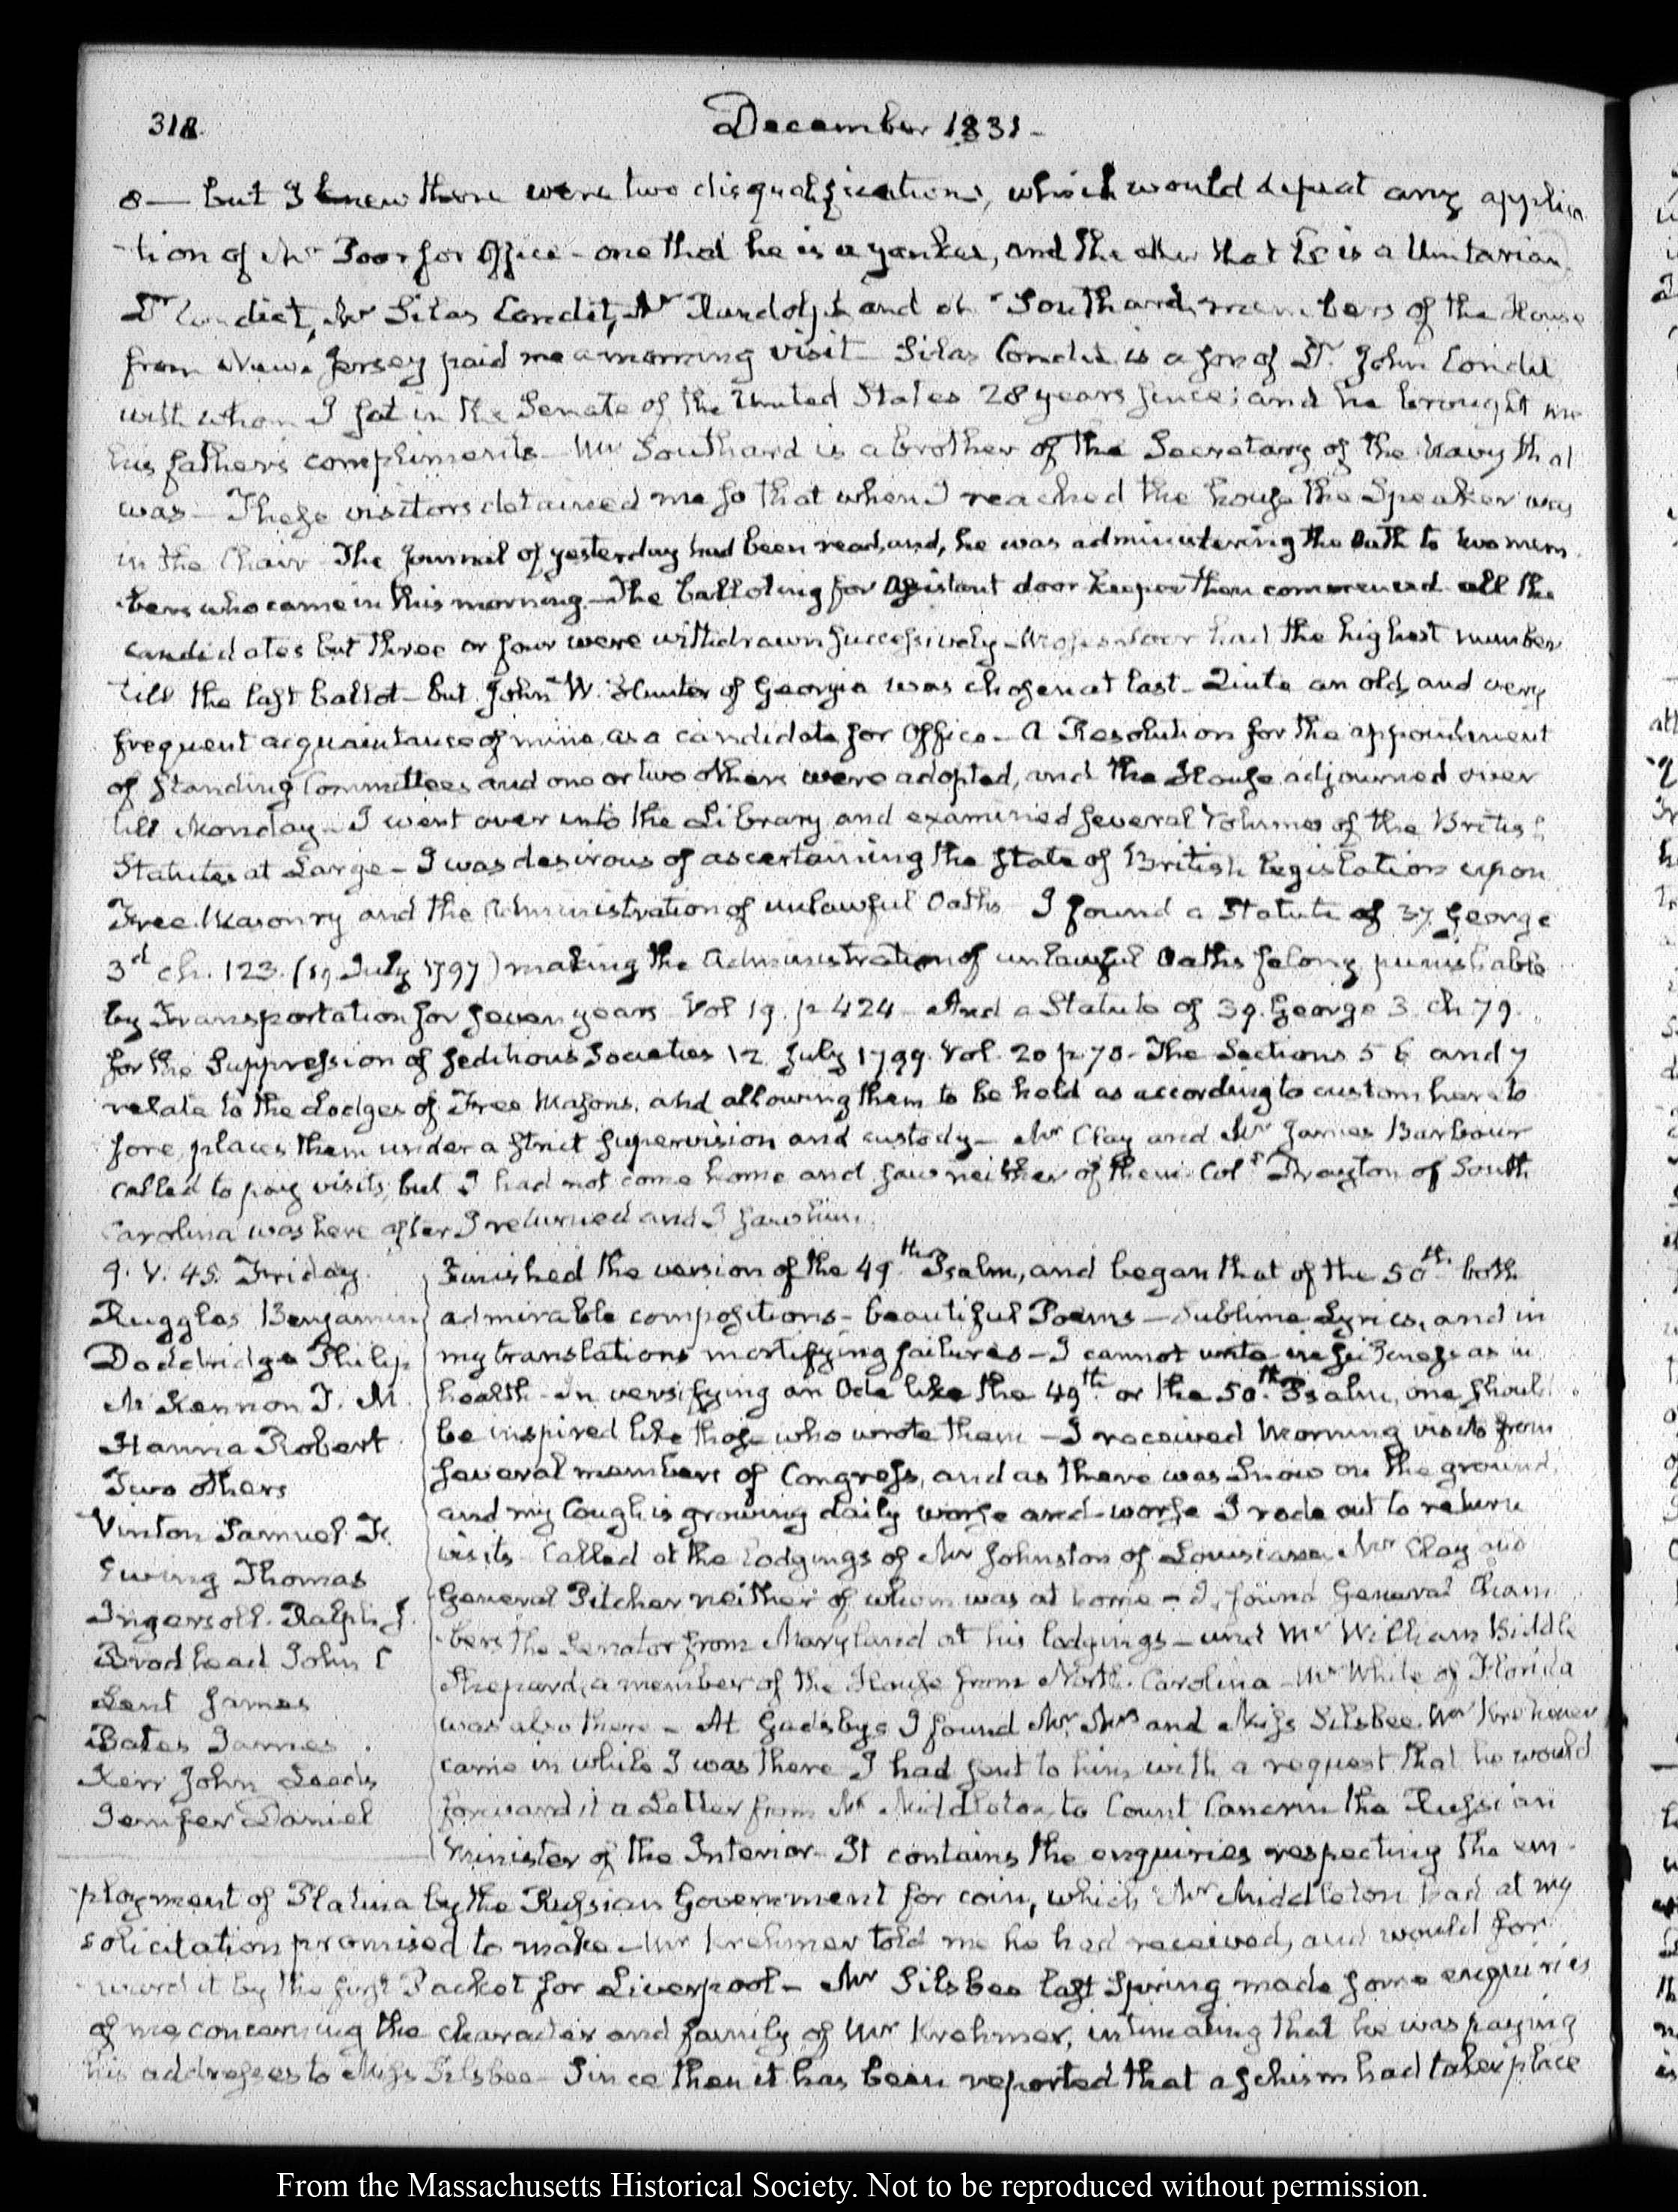 318.
December 1831-
8— but I knew there were two disqualifications, which would defeat any applica
tion of Mr Poor for Office - one that he is a yankee, and the other that he is a Unitarian.
Dr Condict, Mr Silas Condit, Mr Randolph and Mr Southard members of the House
from New-Jersey paid me a morning visit- Silas Condit is a son of Dr. John Condit
with whom I sat in the Senate of the United States 28 years since; and he brought me
his father's compliments- Mr Southard is a brother of the Secretary of the Navy that
was- These visitors detained me so that when I reached the house the Speaker was
in the Chair- The journal of yesterday had been read, and, he was administering the Oath to two mem
bers who came in this morning.- The balloting for Assistant door keeper then commenced all the
candidates but three or four were withdrawn successively- Moses Poor had the highest number
till the last ballot- but John W. Hunter of Georgia was chosen at last- Quite an old, and very
frequent acquaintance of mine, as a candidate for Office- A Resolution for the appointment
of standing Committees and one or two others were adopted, and the House adjourned over
till Monday- I went over into the Library and examined several Volumes of the British
Statutes at Large- I was desirous of ascertaining the state of British Legislation upon
Free Masonry and the Administration of unlawful Oaths- I found a Statute of 37. George
3d ch. 123. (19 July 1797) making the Administration of unlawful Oaths felony, punishable
by Transportation for seven years- Vol 19. p 424- And a Statute of 39. George 3. ch 79.
for the Suppression of seditious Societies 12 July 1799. Vol. 20 p 70- The Sections 5 6 and 7
relate to the Lodges of Free Masons, and allowing them to be held as according to custom hereto
fore, places them under a strict supervision and custody- Mr Clay and Mr James Barbour
called to pay visits, but I had not come home and saw neither of them- Coll Drayton of South
Carolina was here after I returned and I saw him.
9. V. 45. Friday.
Ruggles Benjamin
Doddridge Philip
McKennon T. M.
Hanna Robert
Two others
Vinton Samuel F.
Ewing Thomas
Ingersoll. Ralph J.
Brodhead John C
Lent James
Bates James.
Kerr John Leeds
Jenifer Daniel
Finished the version of the 49th Psalm, and began that of the 50th both
admirable compositions- beautiful Poems- Sublime Lyrics, and in
my translations mortifying failures- I cannot write in sickness as in
health- In versifying an Ode like the 49th or the 50th Psalm, one should
be inspired like those who wrote them- I received Morning visits from
several members of Congress, and as there was Snow on the ground,
and my Cough is growing daily worse and worse I rode out to return
visits- Called at the lodgings of Mr Johnston of Louisiana, Mr Clay and
General Pitcher neither of whom was at home- I found General Cham
bers the Senator from Maryland at his lodgings- and Mr William Biddle
Shepard, a member of the House from North-Carolina- Mr White of Florida
was also there- At Gadsby's I found Mr, Mrs and Miss Silsbee. Mr Krehmer
came in while I was there- I had sent to him with a request that he would
forward it a Letter from Mr Middleton, to Count Cancrin the Russian
Minister of the Interior- It contains the enquiries respecting the em-
ployment of Platina by the Russian Government for coin, which Mr Middleton had at my
solicitation promised to make- Mr Krehmer told me he had received, and would for
ward it by the first Packet for Liverpool- Mr Silsbee last Spring made some enquiries
of me concerning the character and family of Mr Krehmer, intimating that he was paying
his addresses to Miss Silsbee- Since then it has been reported that a schism had taken place
From the Massachusetts Historical Society. Not to be reproduced without permission.